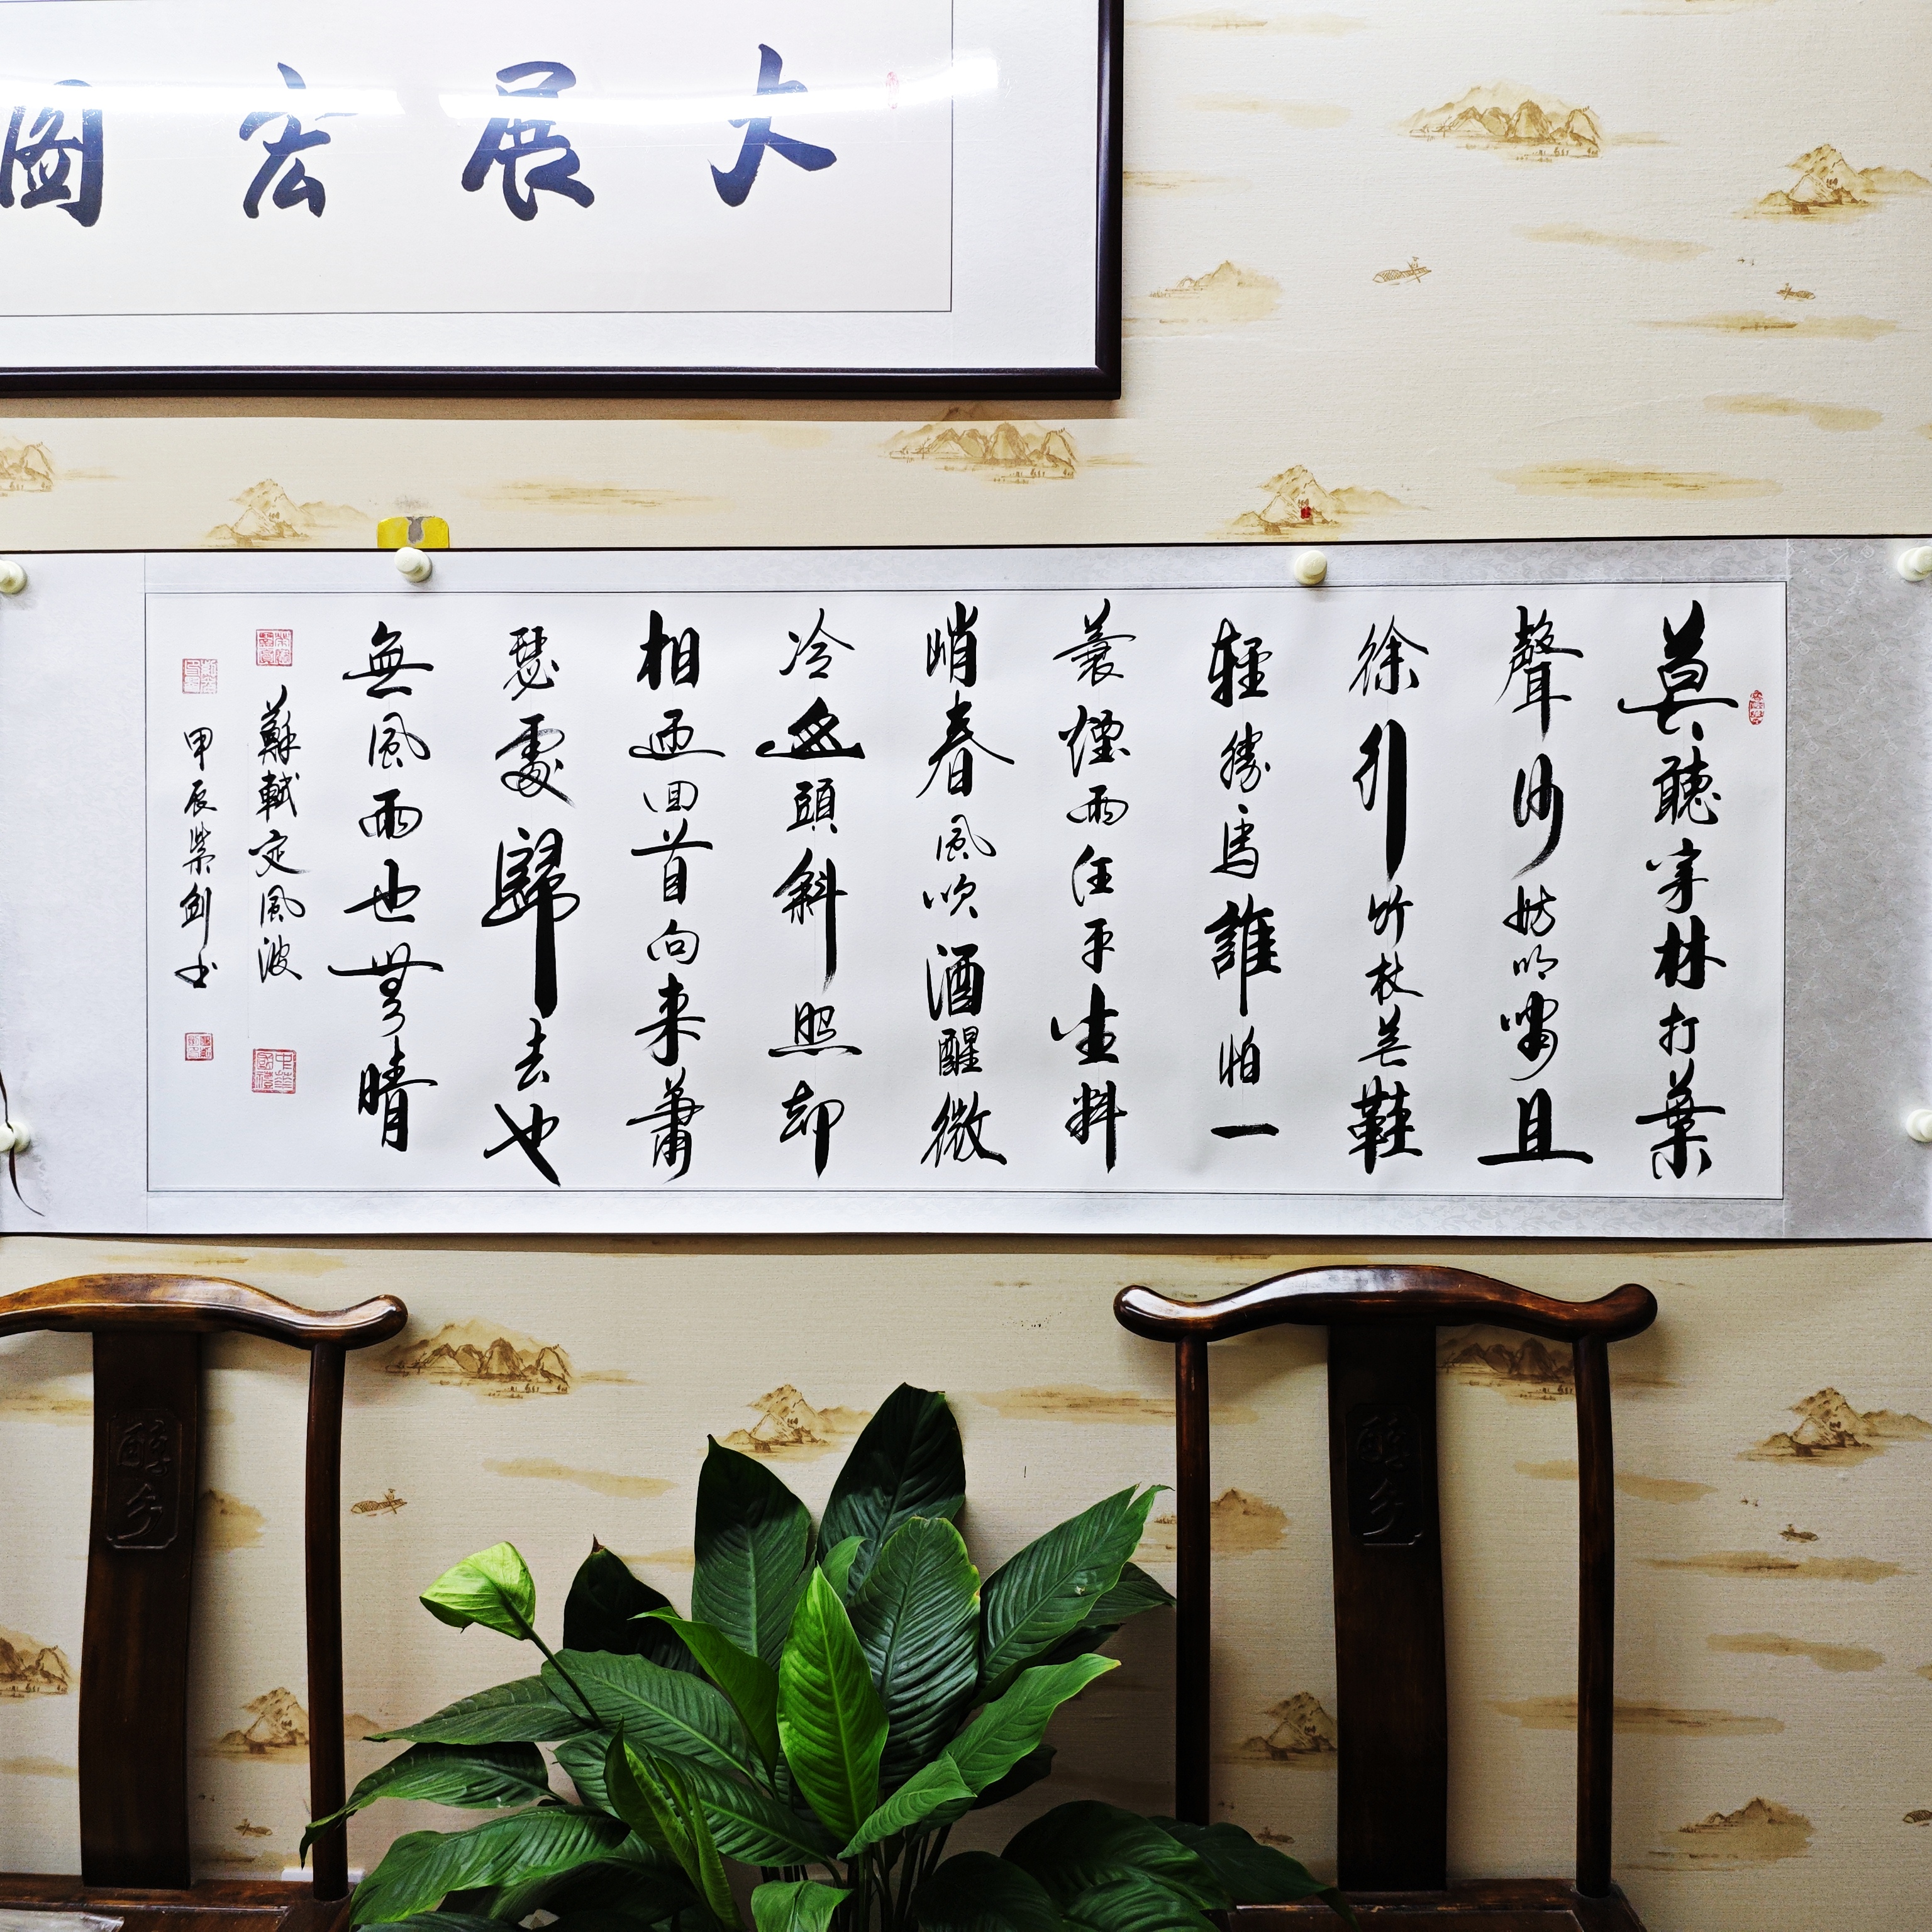 大展宏圖
莫聽穿林打葉
聲何妨吟嘯且
徐行竹杖芒鞋
輕勝馬誰怕一
蓑煙雨任平生料
峭春風吹酒醒微
冷山頭斜照却
相迎回首向来蕭
瑟處歸去也
無風雨也無晴
蘇軾定風波
甲辰劍书